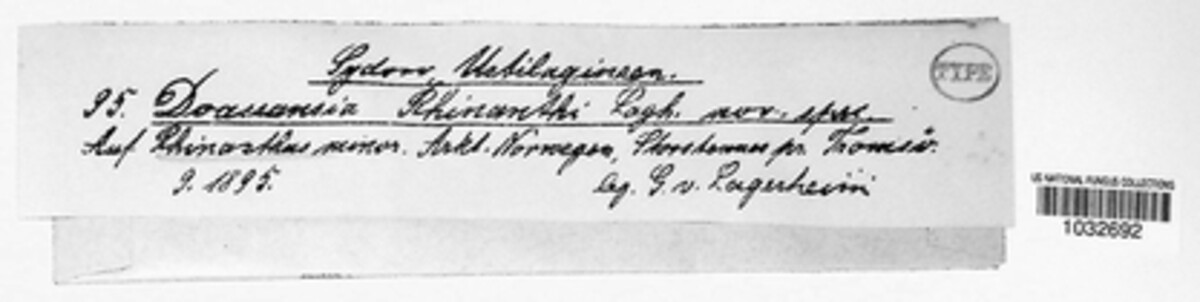 Sydow, Ustilagineen.
TYPE
95. Doassansia Rhinanthi Lagh. nov. spec.
Auf Rhinanthus minor. Arkt. Norwegen, Storstennes pr. Tromsö.
9. 1895. leg. G. v. Lagerheim
US NATIONAL FUNGUS COLLECTIONS
1032692